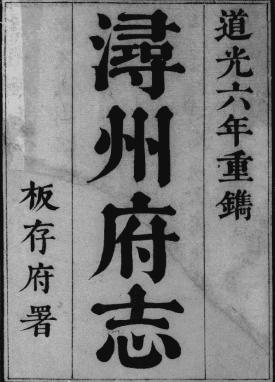 道光六年重鐫
潯州府志
板存府署